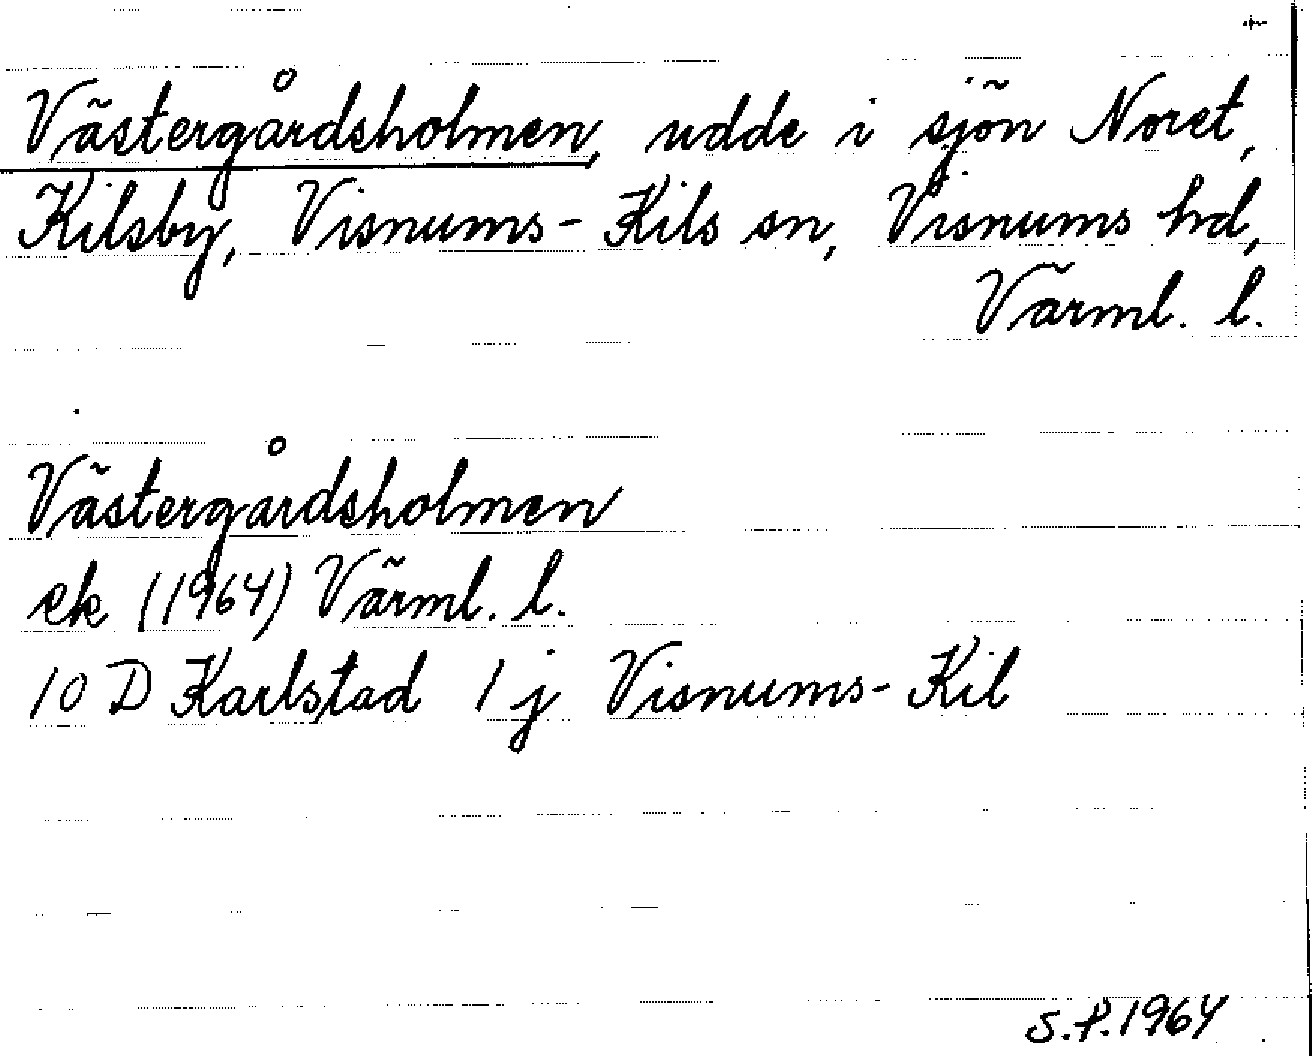 Västergårdsholmen, udde i sjön Noret,
Kilsby, Visnums-Kils sn, Visnums hd,
Värml. l.
Västergårdsholmen
ek (1964) Värml. l.
10 D Karlstad 1 j Visnums-Kil
S.P. 1964